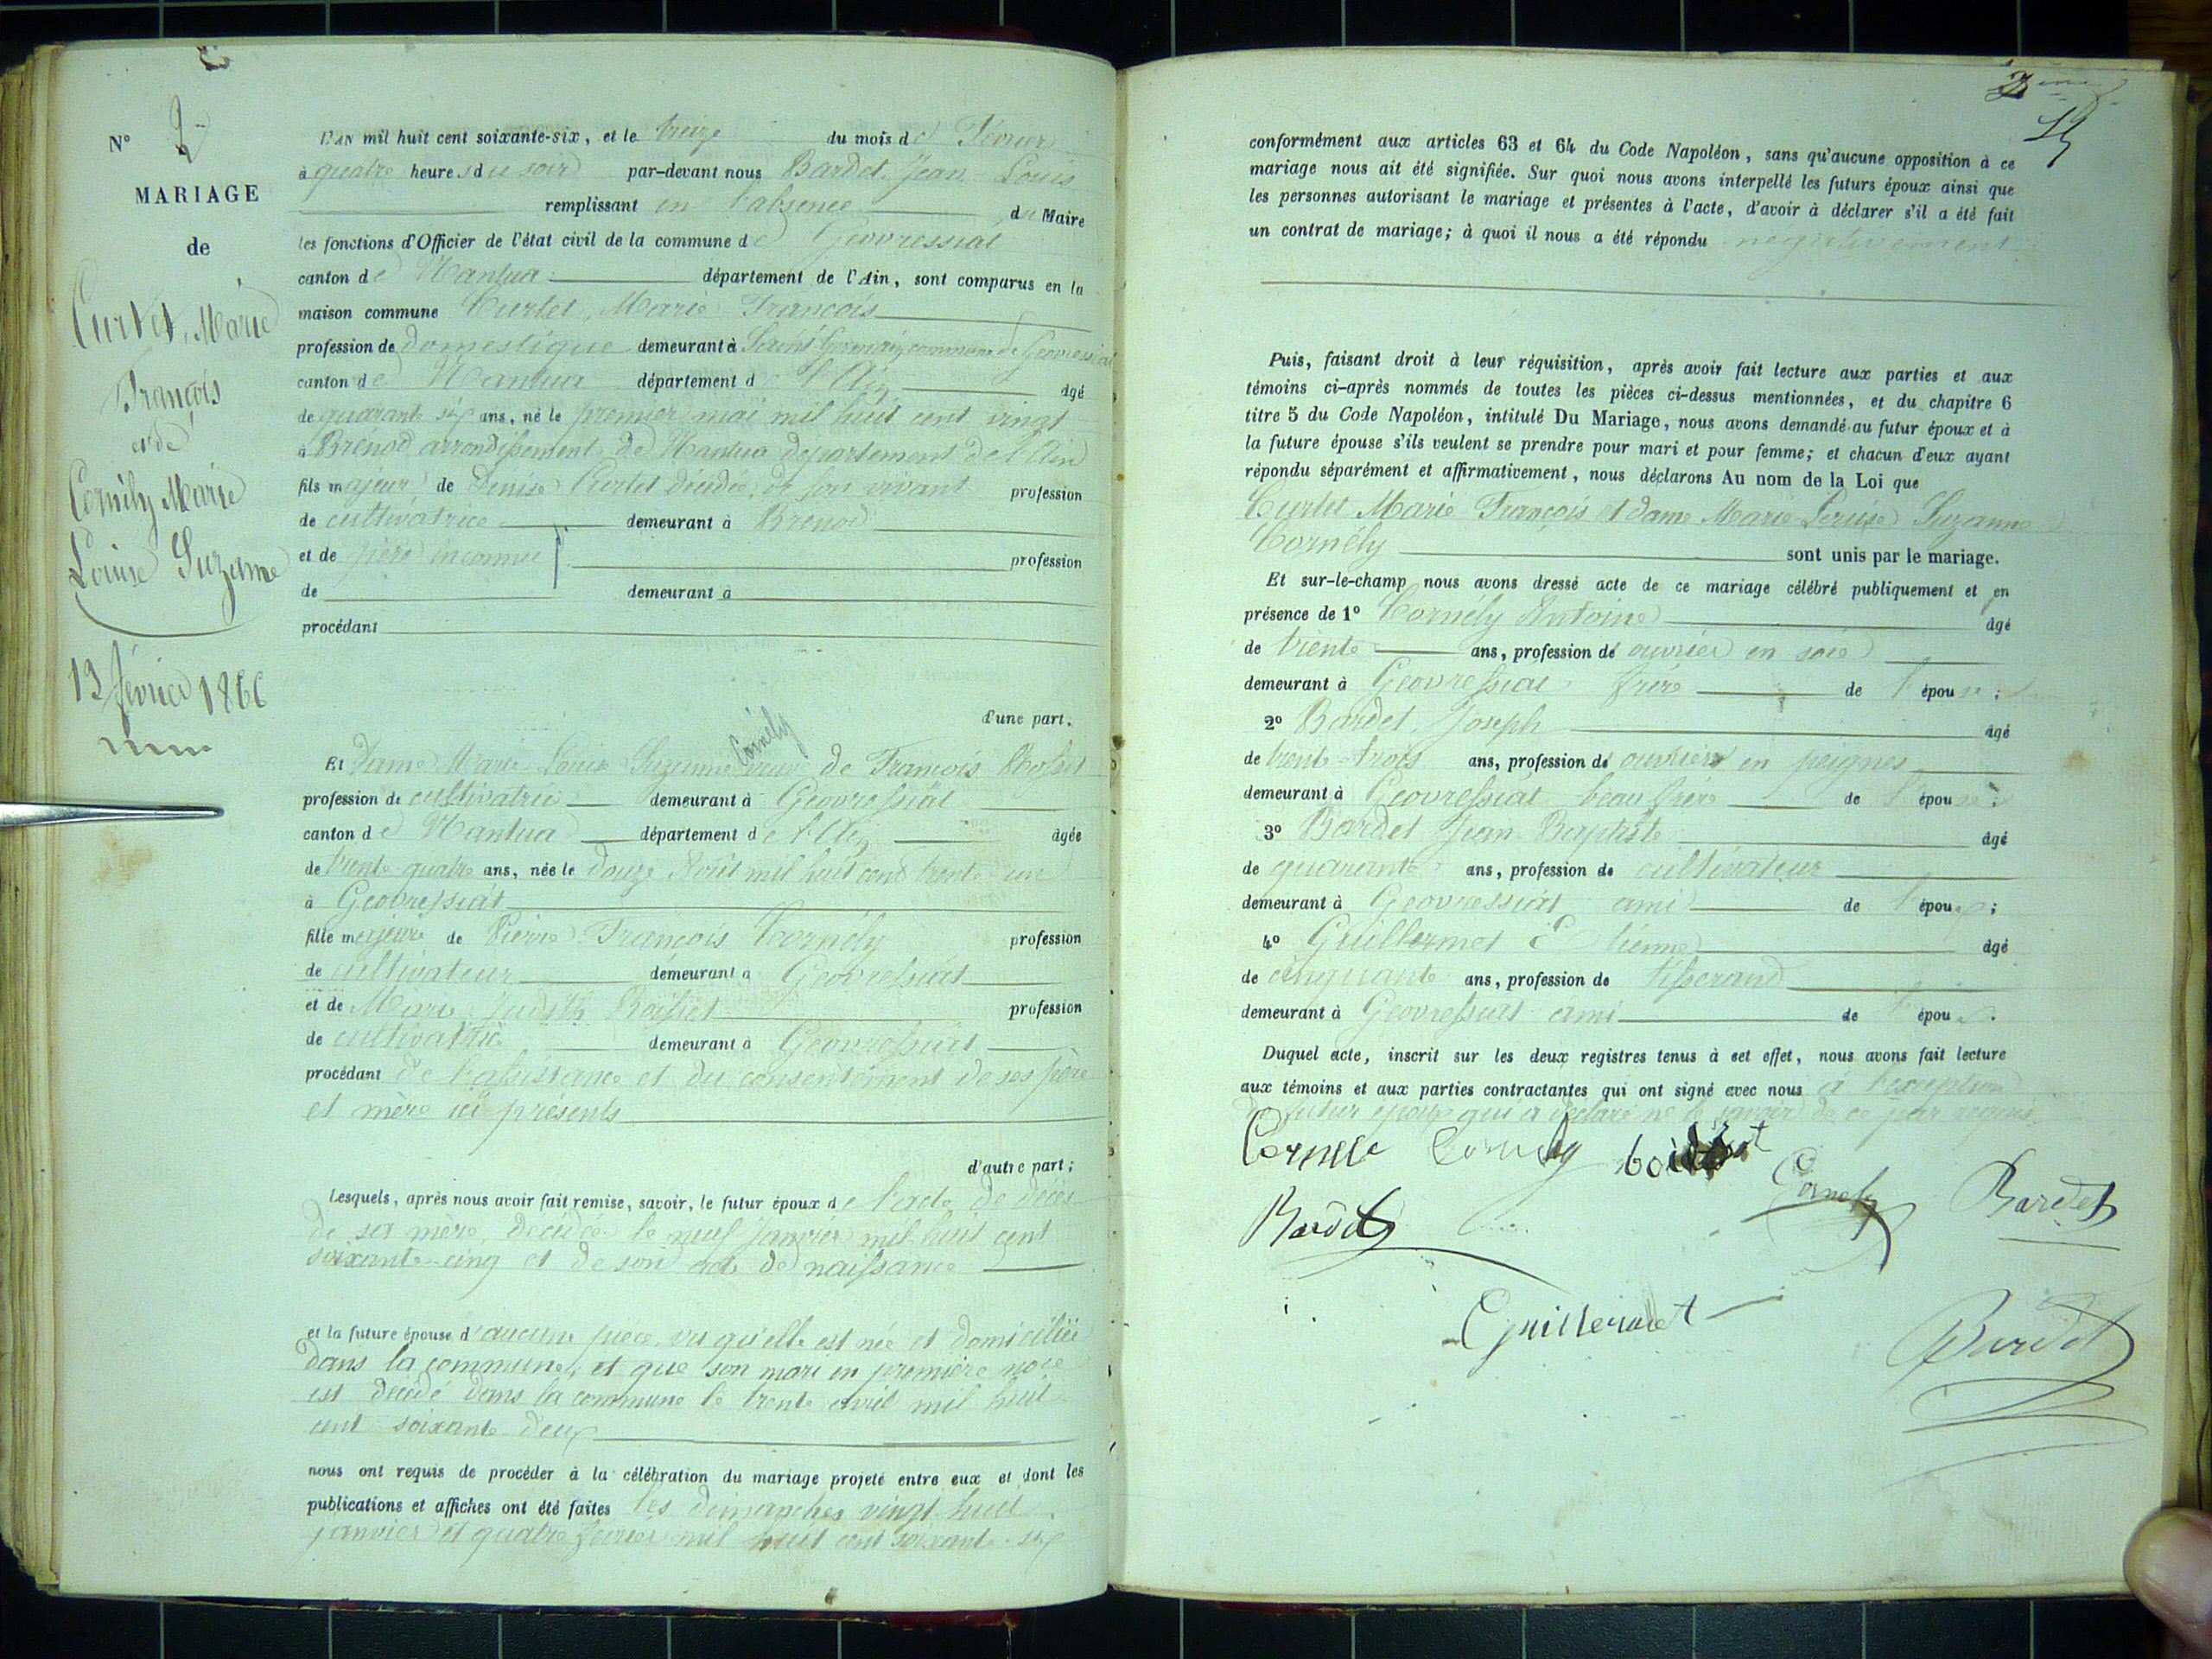 N° 2
MARIAGE
de
Curtet, Marie
François
et de
Cornély Marie
Louise Suzanne
13 février 1866
L'AN mil huit cent soixante-six, et le treize du mois de Février
à quatre heures du soir par-devant nous Bardet Jean Louis
remplissant en l'absence du Maire
les fonctions d'Officier de l'état civil de la commune de Géovressiat
canton de Nantua département de l'Ain, sont comparus en la
maison commune Curtet, Marie François
profession de domestique demeurant à Saint Germain commune de Géovressiat
canton de Nantua département de l'Ain âgé
de quarante six ans, né le premier mai mil huit cent vingt
à Brénod arrondissement de Nantua département de l'Ain
fils majeur de Denise Curtet décédée, de son vivant profession
de cultivatrice demeurant à Brénod
et de père inconnu profession
de demeurant à
procédant
d'une part.
Et dame Marie Louise Suzanne Cornély veuve de François
profession de cultivatrice demeurant à Géovressiat
canton de Nantua département de l'Ain âgée
de trente-quatre ans, née le douze Août mil huit cent trente un
à Géovressiat
fille majeure de Pierre François Cornély profession
de cultivateur demeurant à Géovressiat
et de Marie Judith profession
de cultivatrice demeurant à Géovressiat
procédant de l'assistance et du consentement de ses père
et mère ici présents
d'autre part;
Lesquels, après nous avoir fait remise, savoir, le futur époux de l'acte de décès
de sa mère, décédée le neuf janvier mil huit cent
soixante-cinq et de son acte de naissance
et la future épouse d'aucune pièce vu qu'elle est née et domiciliée
dans la commune, et que son mari en première noce
est décédé dans la commune le trente avril mil huit
cent soixante deux
nous ont requis de procéder à la célébration du mariage projeté entre eux et dont les
publications et affiches ont été faites les dimanches vingt huit
janvier et quatre février mil huit cent soixante six
conformément aux articles 63 et 64 du Code Napoléon, sans qu'aucune opposition à ce
mariage nous ait été signifiée. Sur quoi nous avons interpellé les futurs époux ainsi que
les personnes autorisant le mariage et présentes à l'acte, d'avoir à déclarer s'il a été fait
un contrat de mariage; à quoi il nous a été répondu négativement
Puis, faisant droit à leur réquisition, après avoir fait lecture aux parties et aux
témoins ci-après nommés de toutes les pièces ci-dessus mentionnées, et du chapitre 6
titre 5 du Code Napoléon, intitulé Du Mariage, nous avons demandé au futur époux et à
la future épouse s'ils veulent se prendre pour mari et pour femme; et chacun d'eux ayant
répondu séparément et affirmativement, nous déclarons Au nom de la Loi que
Curtet Marie François et dame Marie Louise Suzanne
Cornély sont unis par le mariage.
Et sur-le-champ nous avons dressé acte de ce mariage célébré publiquement et en
présence de 1° Cornély Antoine âgé
de trente ans, profession de ouvrier en soie
demeurant à Géovressiat frère de l'épouse;
2° Bardet Joseph âgé
de trente-trois ans, profession de ouvrier en peignes
demeurant à Géovressiat beau frère de l'épouse;
3° Bardet Jean Baptiste âgé
de quarante ans, profession de cultivateur
demeurant à Géovressiat ami de l'époux;
4° Guillermet Etienne âgé
de cinquante ans, profession de tisserand
demeurant à Géovressiat ami de l'époux.
Duquel acte, inscrit sur les deux registres tenus à cet effet, nous avons fait lecture
aux témoins et aux parties contractantes qui ont signé avec nous à l'exception
du futur époux qui a déclaré ne le savoir de ce par requis
Cornely
Cornely Bardet
Bardet
Guillermet
Bardet